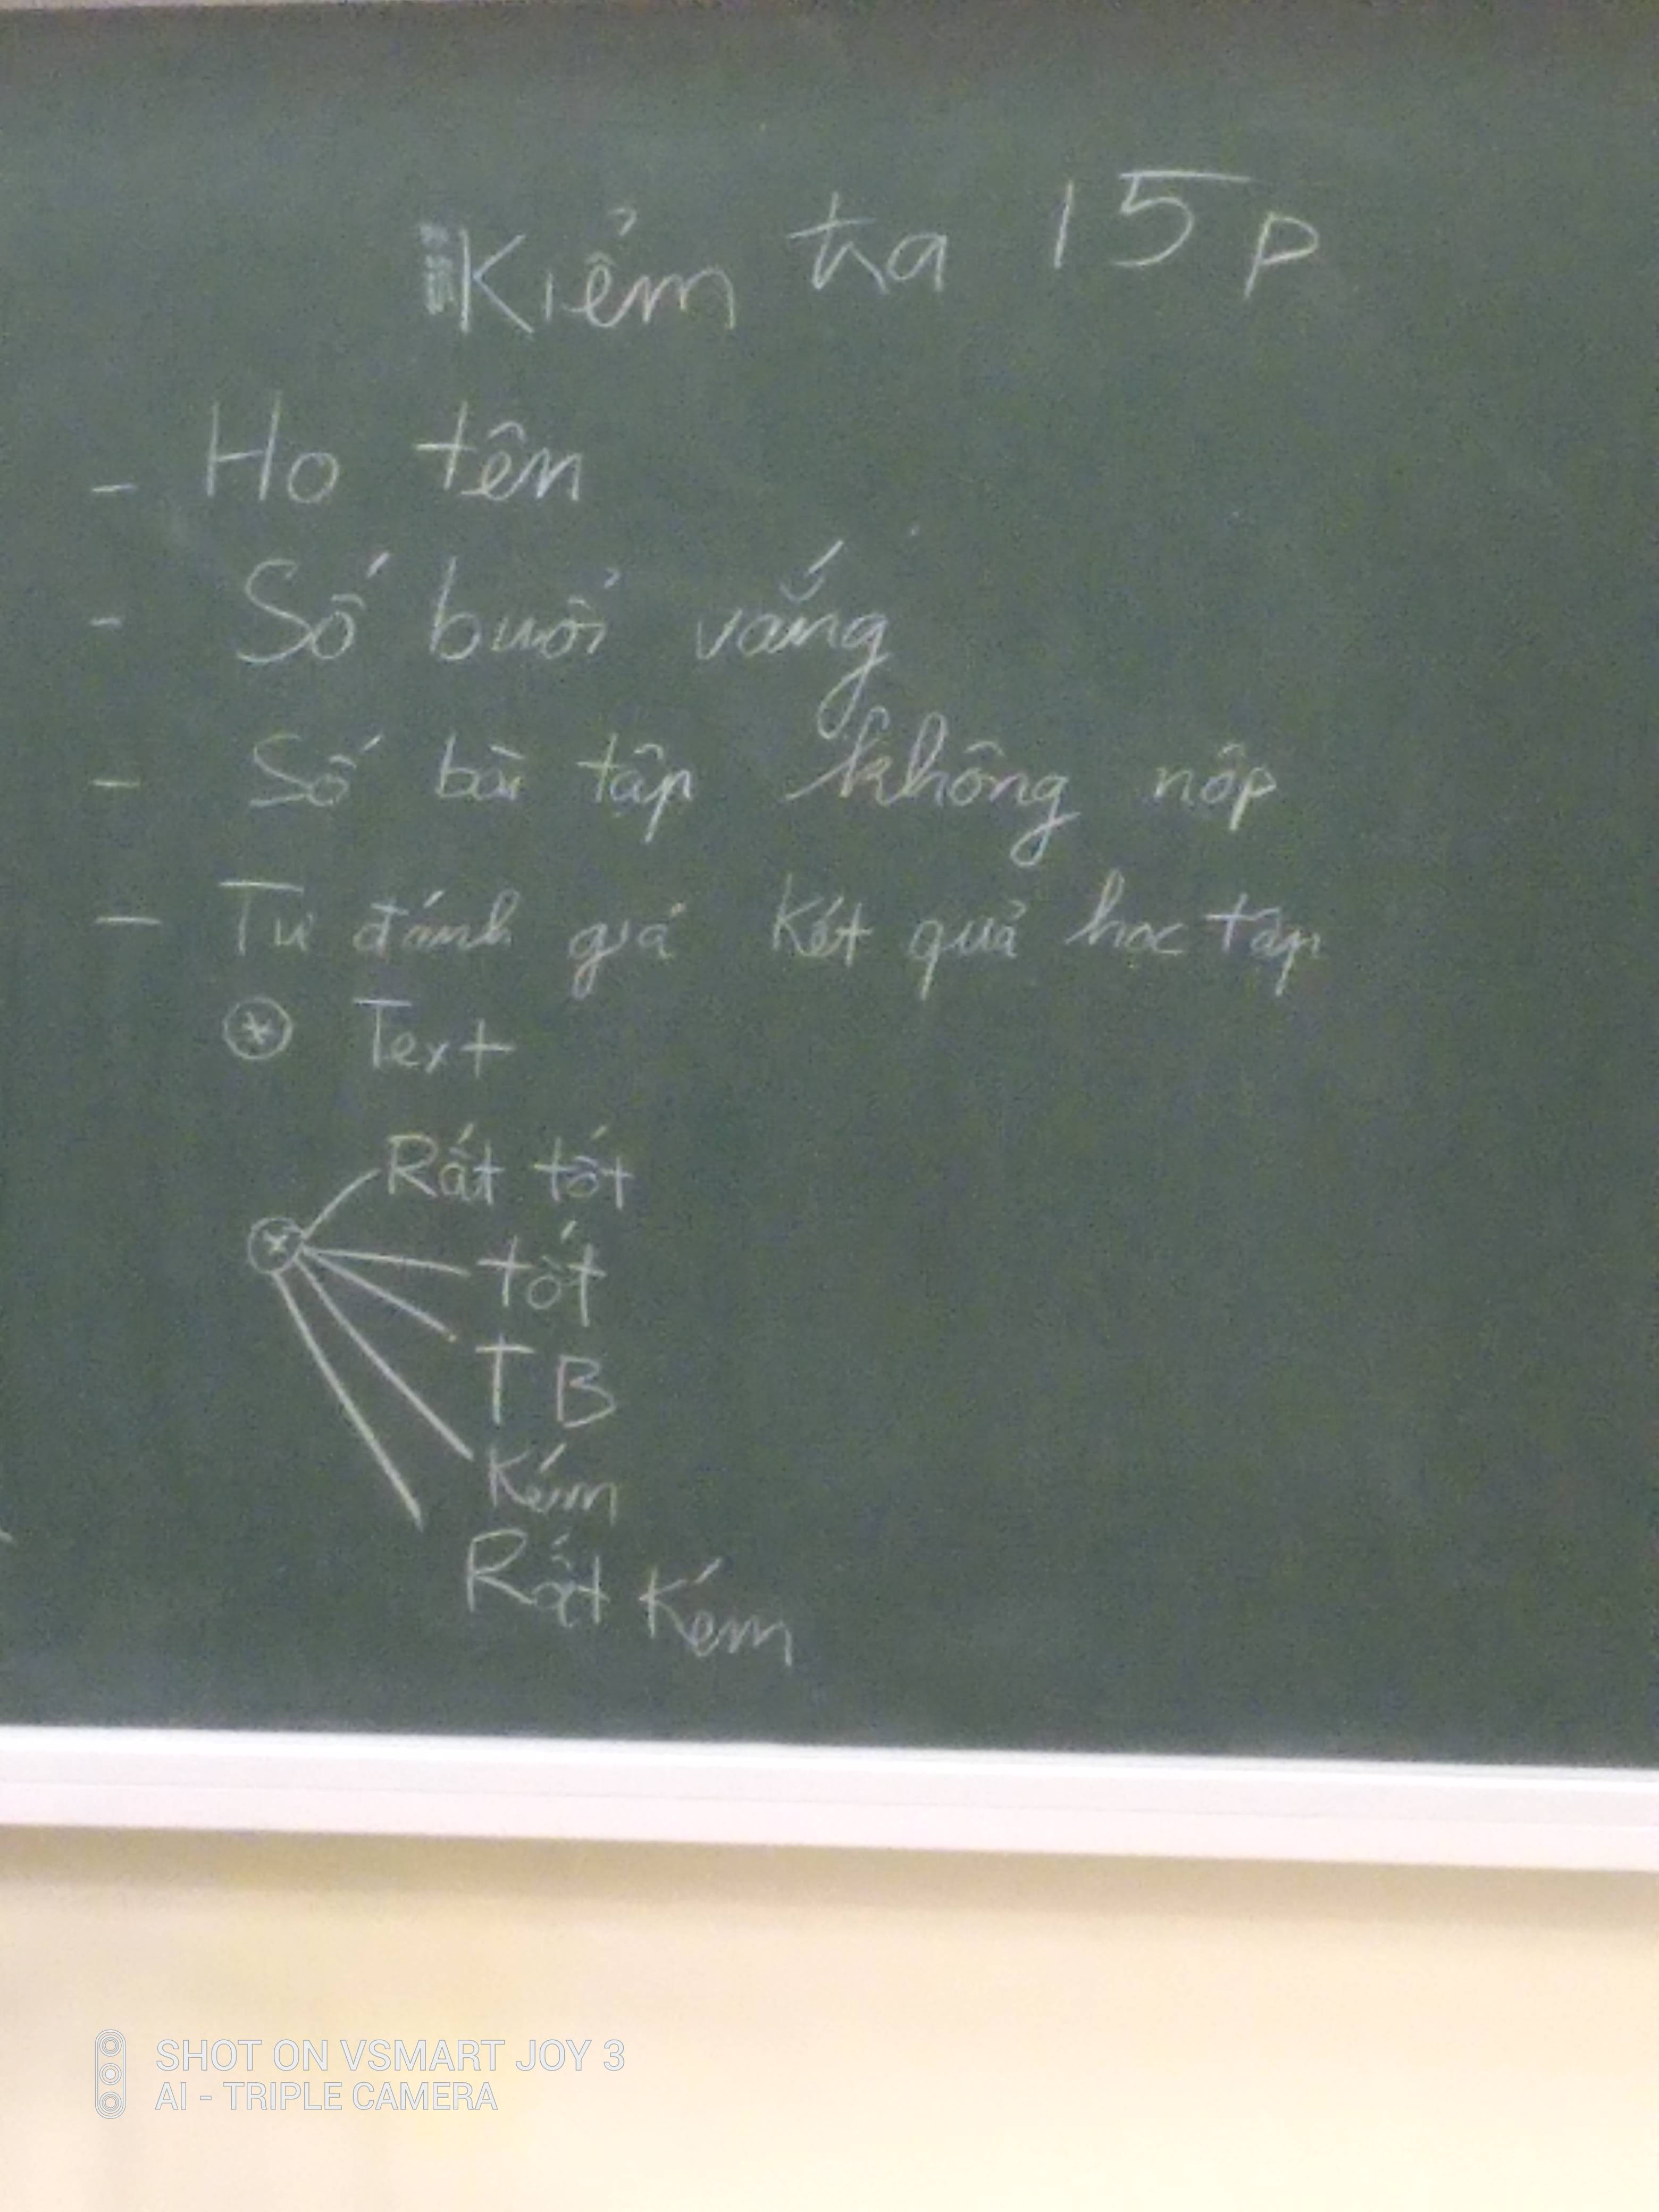 Kiểm tra 15p
- Họ tên
- Số buổi vắng
- Số bài tập không nộp
- Tự đánh giá kết quả học tập
⊛ Text
⊛ Rất tốt
tốt
TB
Kém
Rất kém
SHOT ON VSMART JOY 3
AI - TRIPLE CAMERA